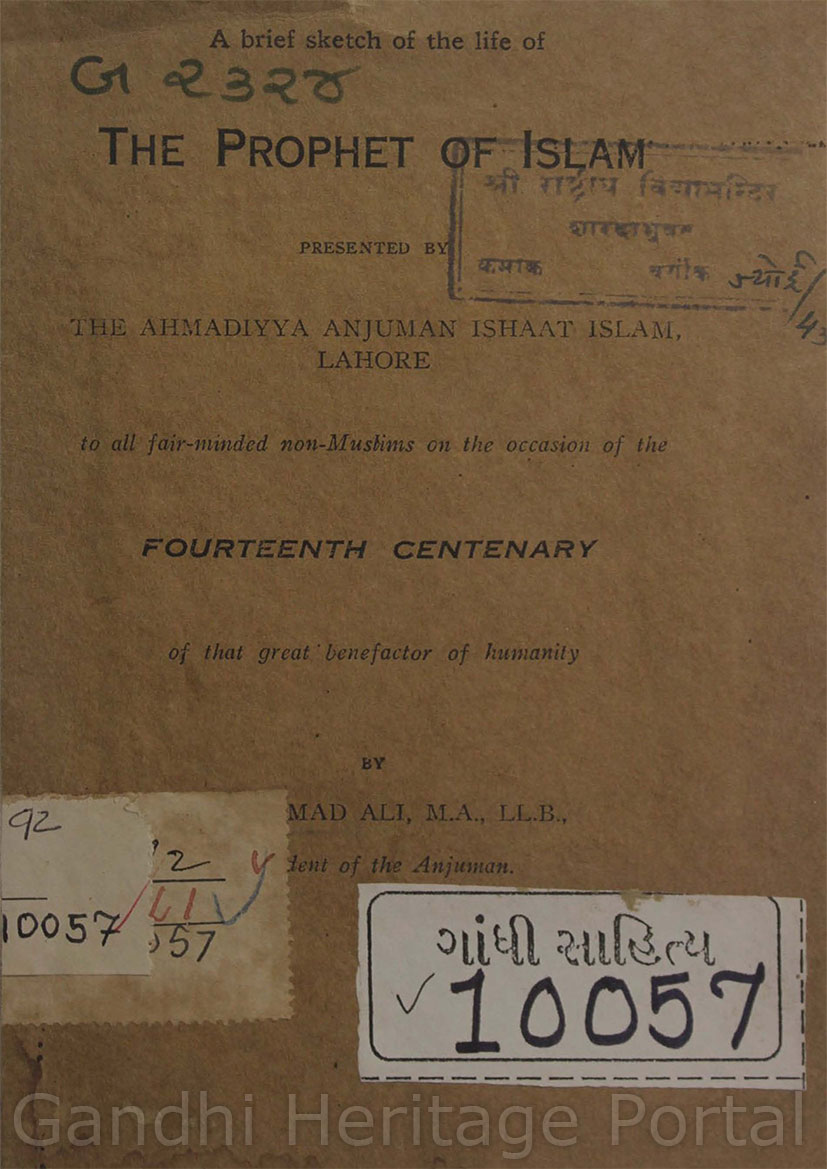 A brief sketch of the life of
બ ૨૩૨૪
THE PROPHET OF ISLAM
श्री राष्ट्रीय विद्यामन्दिर
शारदाभुवन
क्रमांक वर्गांक
PRESENTED BY
THE AHMADIYYA ANJUMAN ISHAAT ISLAM,
LAHORE
to all fair-minded non-Muslims on the occasion of the
FOURTEENTH CENTENARY
of that great benefactor of humanity
BY
MAD ALI, M.A., LL.B.,
dent of the Anjuman.
92
10057
2
57
ગાંધી સાહિત્ય
10057
Gandhi Heritage Portal